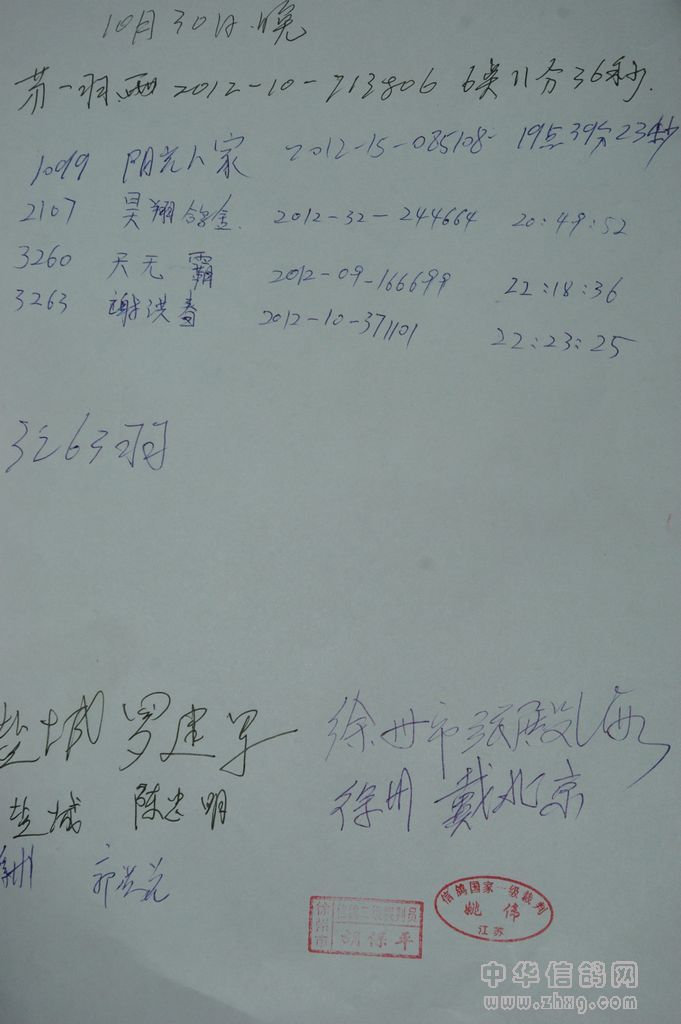 10月30日.晚
第一羽.西 2012-10-713806 6点11分36秒.
1099 阳光人家 2012-15-085108 19点39分23秒
2107 昊翔鸽舍. 2012-32-244664 20:49:52
3260 天无霸 2012-09-166699 22:18:36
3263 谢洪春 2012-10-371101 22:23:25
3263羽
盐城 罗建军 徐州市张殿海
盐城 陈忠明 徐州 戴北京
徐州
徐州市 信鸽三级裁判员 胡保平
信鸽国家一级裁判 姚伟 江苏
中华信鸽网
www.zhxg.com